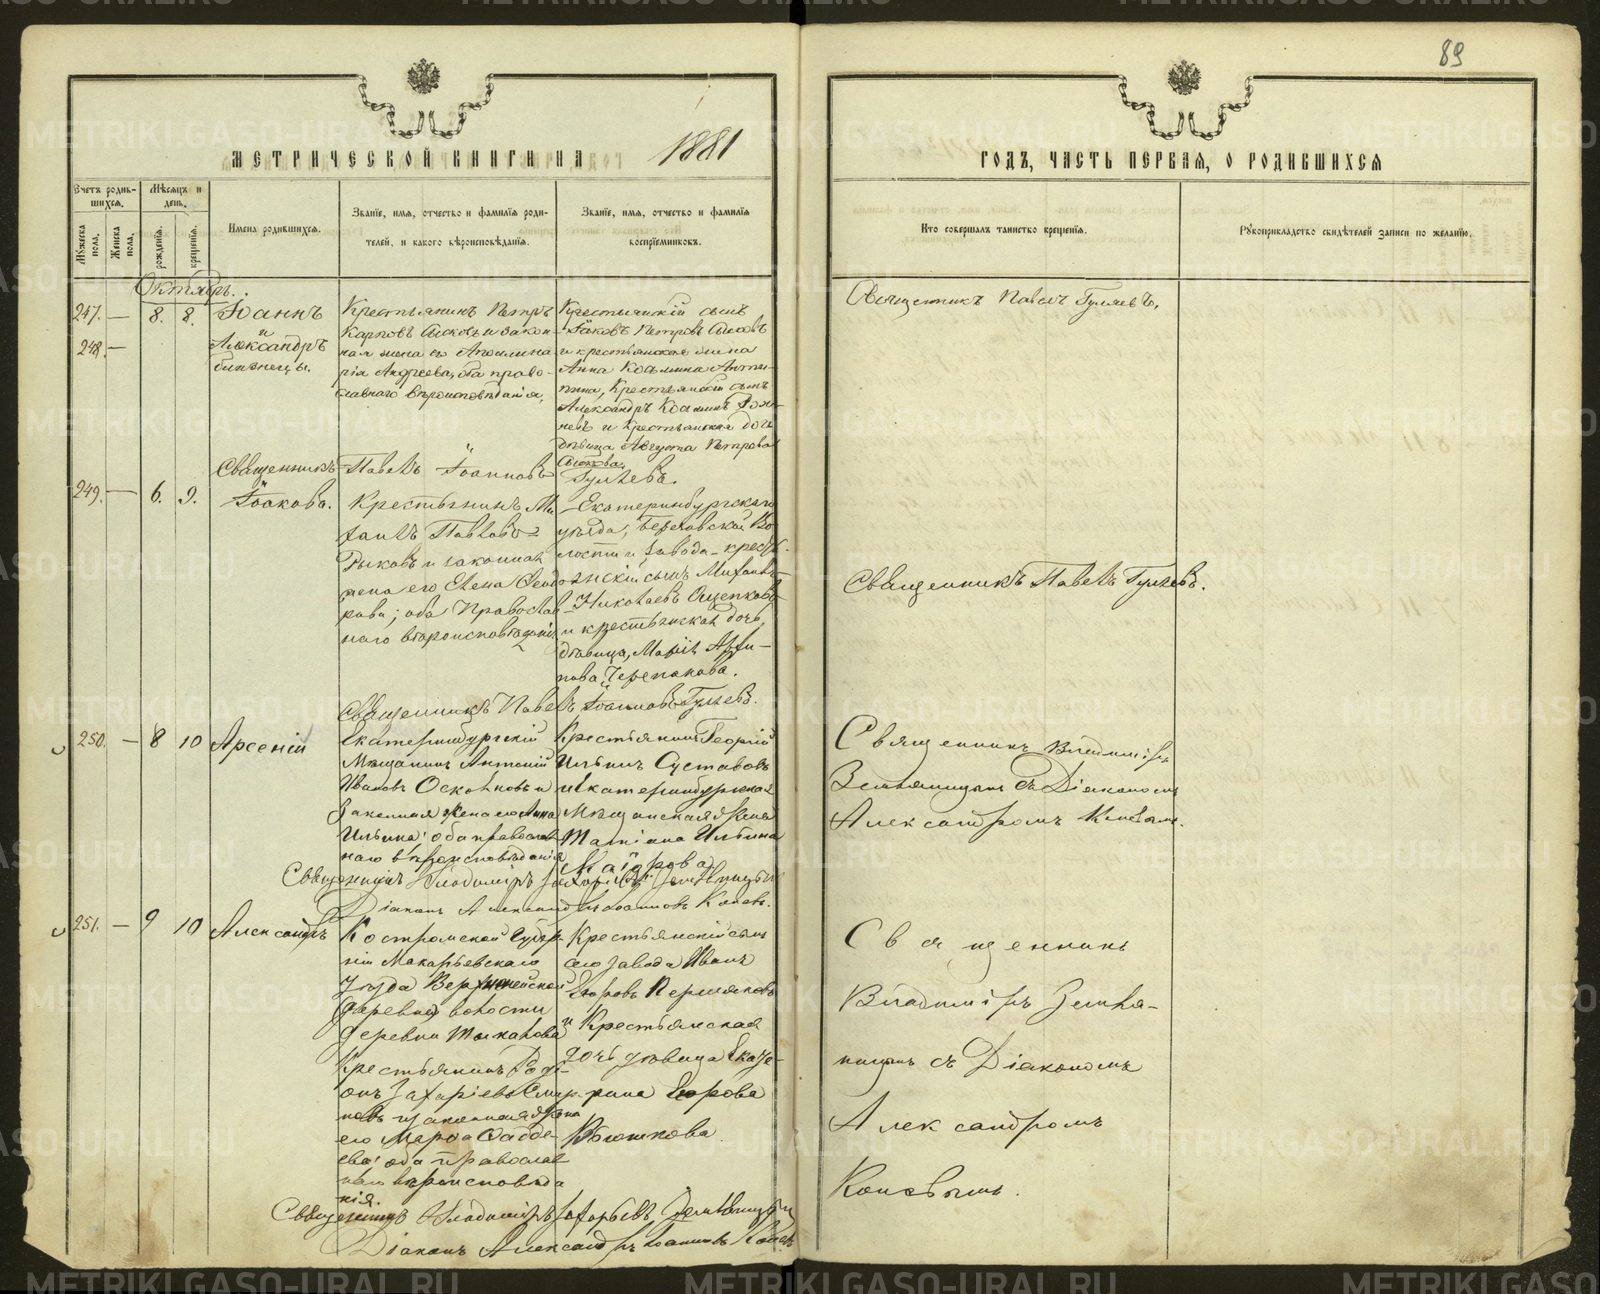 89
МЕТРИЧЕСКОЙ КНИГИ НА 1881
ГОДЪ, ЧАСТЬ ПЕРВАЯ, О РОДИВШИХСЯ
Счетъ родив-
шихся.
Мѣсяцъ и
день.
Мужеска
пола.
Женска
пола.
рожденія.
крещенія.
Имена родившихся.
Званіе, имя, отчество и фамилія роди-
телей, и какого вѣроисповѣданія.
Званіе, имя, отчество и фамилія
воспріемниковъ.
Кто совершалъ таинство крещенія.
Рукоприкладство свидѣтелей записи по желанію.
Октябрь.
247. — 8. 8.
248. —
Іоаннъ
и
Александръ
близнецы.
Крестьянинъ Петръ
Карповъ и закон-
ная жена его Аполлина-
рія Андреева, оба право-
славнаго вѣроисповѣданія.
Крестьянскій сынъ
Іаковъ Петровъ
и крестьянская жена
Анна Козьмина Анти-
пина, Крестьянскій сынъ
Александръ
и Крестьянская дочь
дѣвица Августа Петрова
Священникъ Павелъ Іоанновъ Гуляевъ.
Священникъ Павелъ Гуляевъ.
249. — 6. 9.
Іаковъ.
Крестьянинъ Ми-
хаилъ Павловъ
Рыковъ и законная
жена его Елена Ѳеодо-
рова; оба Православ-
наго вѣроисповѣданія
Екатеринбургскаго
уѣзда, Березовской Во-
лости и завода крестья-
нскій сынъ Михаилъ
Николаевъ Ощепковъ
и крестьянская дочь,
дѣвица, Марія Архи-
пова Черепанова.
Священникъ Павелъ Іоанновъ Гуляевъ.
Священникъ Павелъ Гуляевъ.
250. — 8 10 Арсеній
Екатеринбургскій
Мѣщанинъ Антоній
Ивановъ Осколковъ и
Законная Жена его Анна
Ильина; оба православ-
наго вѣроисповѣданія
Крестьянинъ Георгій
Ильинъ Суставовъ
и Екатеринбургская
Мѣщанская Жена
Татіана Ильина
Маіорова
Священникъ Владиміръ Захаріевъ Земляницынъ
Діаконъ Александръ Іоанновъ Коневъ.
Священникъ Владиміръ
Земляницынъ съ Діакономъ
Александромъ Коневымъ.
251. — 9 10 Александръ
Костромской Губер-
ніи Макарьевскаго
Уѣзда
волости
деревни
Крестьянинъ Роді-
онъ Захаріевъ Смир-
новъ и законная жена
его Марѳа Ѳадде-
ева; оба православ-
наго вѣроисповѣда
нія.
Крестьянскій сынъ
сего завода Иванъ
Егоровъ Пермяковъ
и Крестьянская
дочь дѣвица Екате-
рина Егорова
Священникъ Владиміръ Захарьевъ Земляницынъ
Діаконъ Александръ Іоанновъ Коневъ
Священникъ
Владиміръ Земля-
ницынъ съ Діакономъ
Александромъ
Коневымъ.
METRIKI.GASO-URAL.RU